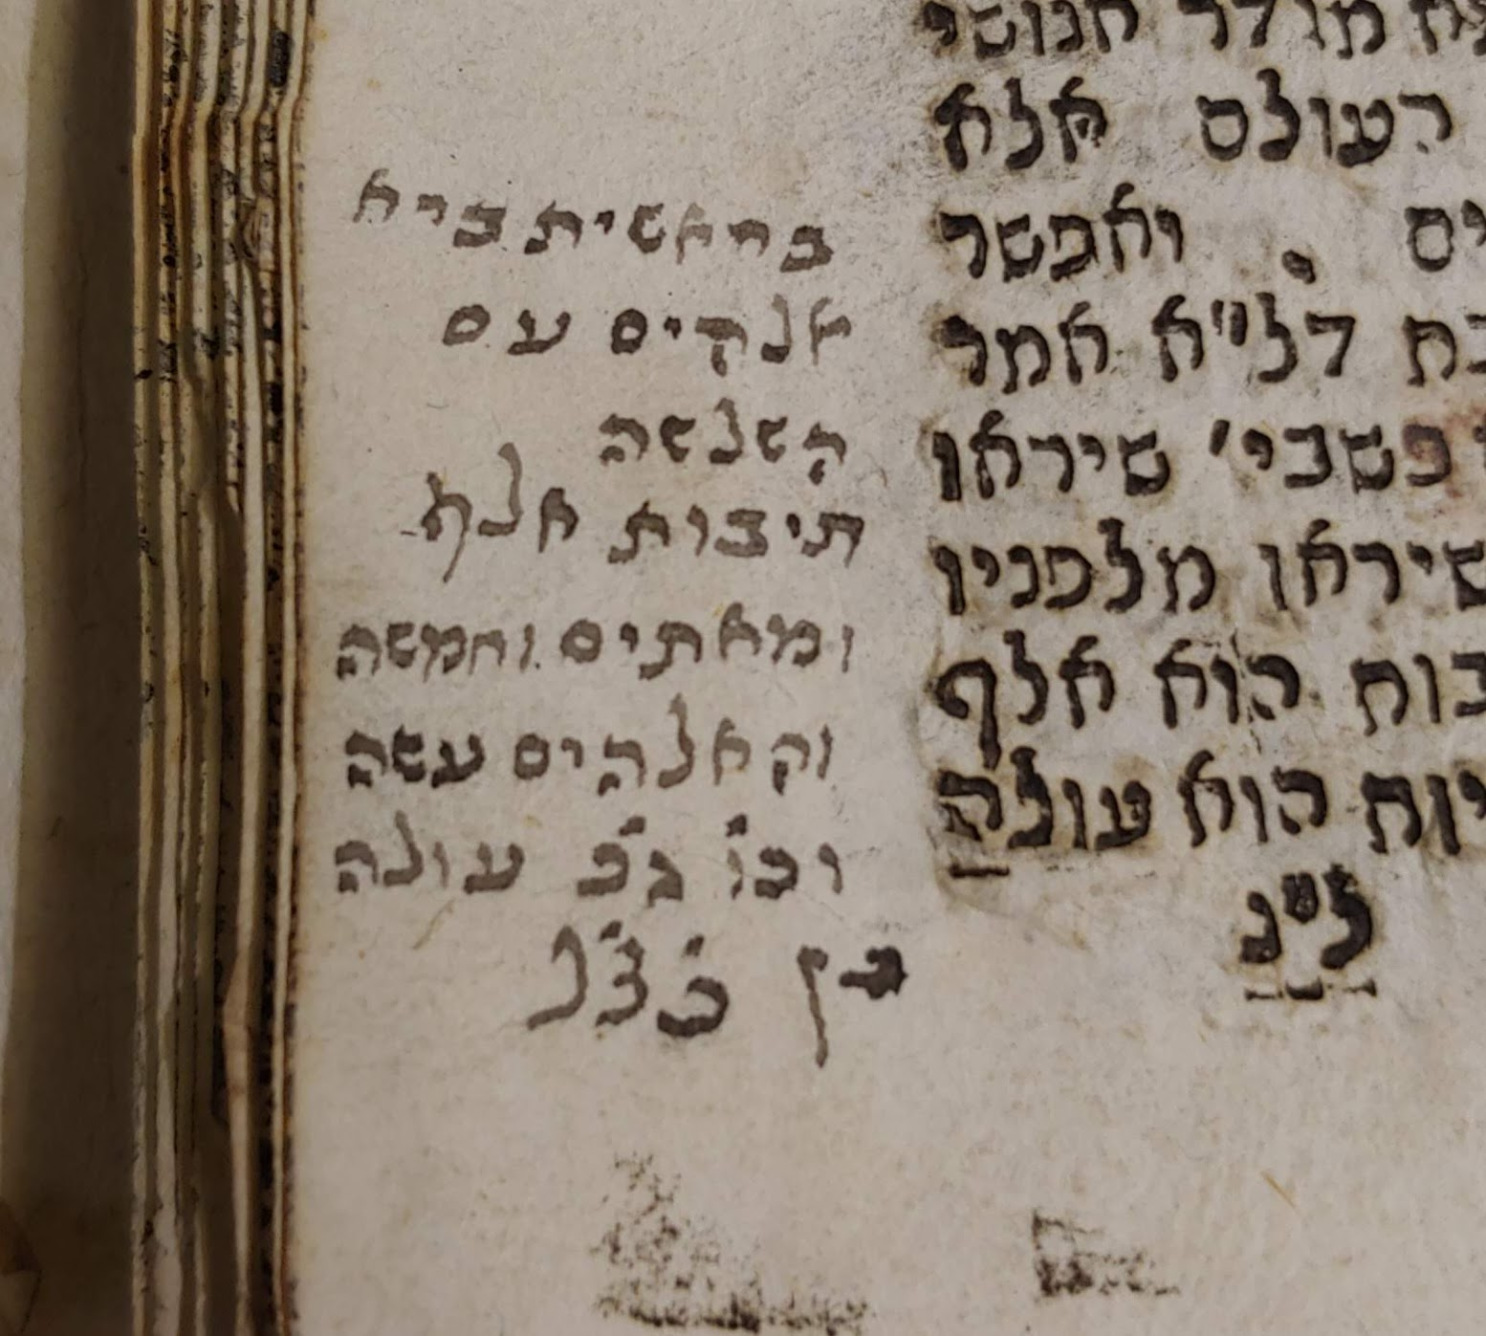 העולם אלא
ים . ואפשר
דל"א אמר
כשבי' שיראו
שיראו מלפניו
בות הוא אלף
יות הוא עולה
ל"נ
בראשית ברא
אלהים עם
השלשה
תיבות אלף
ומאתים וחמשה
והאלהים עשה
וכו' ג"כ עולה
כן כ'צ'ל